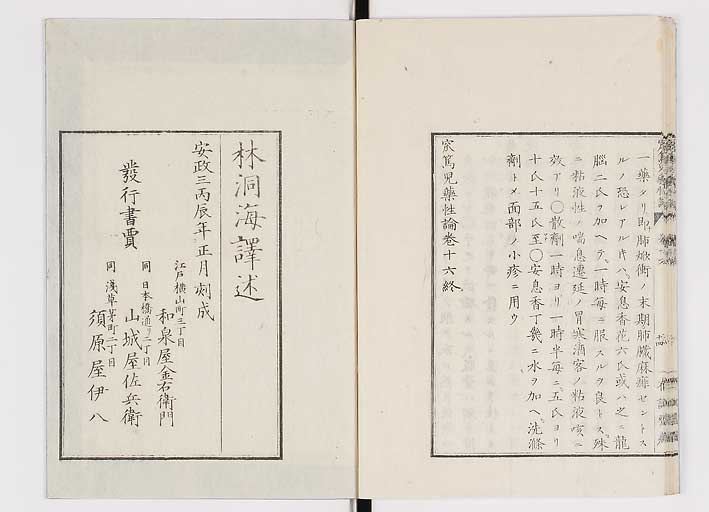 一藥タリ即肺焮衝ノ末期肺臓麻痺セントス
ルノ恐レアル片ハ安息香花六氏或ハ之ニ龍
腦二氏ヲ加ヘテ一時毎ニ服スルヲ良トス殊
ニ粘液性ノ喘息遷延ノ冒寒酒客ノ粘液咳ニ
效アリ〇散劑一時ヨリ一時半毎ニ五氏ヨリ
十氏十五氏至〇安息香丁幾ニ水ヲ加ヘ洗滌
劑トメ面部ノ小疹ニ用ウ
窊篤児藥性論卷十六終
林洞海譯述
安政三丙辰年正月刻成
發行書賈
江戸横山町三丁目
和泉屋金右衛門
同日本橋通リ二丁目
山城屋佐兵衛
同淺草茅町二丁目
須原屋伊八